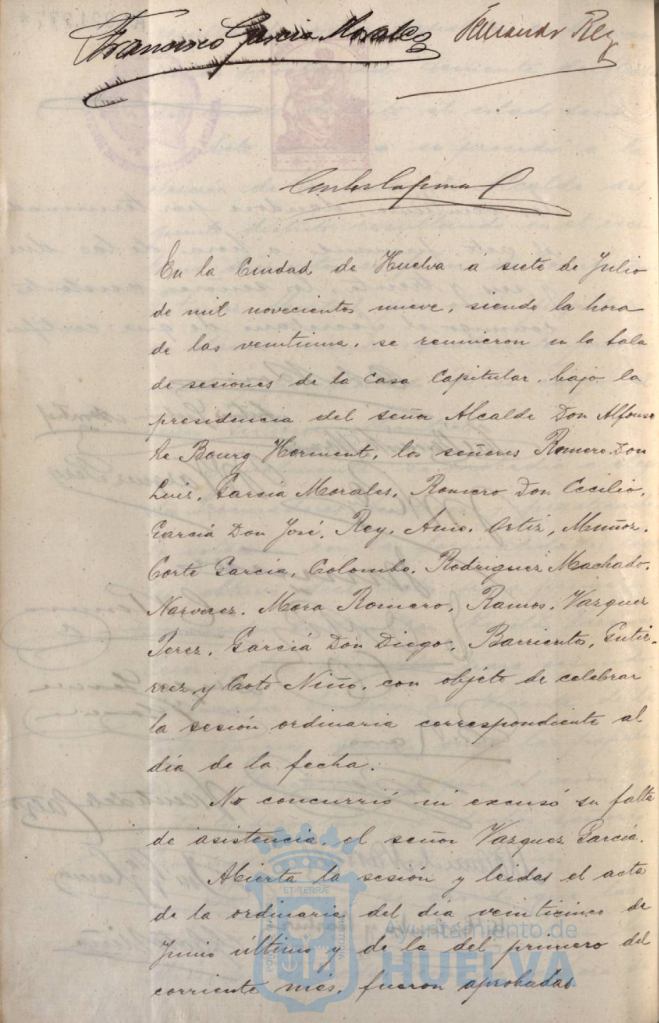 Francisco García Morales Fernando Rey
En la Ciudad de Huelva á siete de Julio
de mil novecientos nueve, siendo la hora
de las veintiuna, se reunieron en la Sala
de sesiones de la Casa Capitular, bajo la
presidencia del señor Alcalde Don Alfonso
Le Bourg Horment, los señores Romero Don
Luis, García Morales, Romero Don Cecilio,
García Don José, Rey, Ortiz, Muñoz,
Corte Garcia, Colombo, Rodriguez Machado,
Narvaez, Mora Romero, Ramos, Vazquez
Perez, Garciá Don Diego, Barrientos, Gutie-
rrez, y Coto Niño, con objeto de celebrar
la sesión ordinaria correspondiente al
día de la fecha.
No concurrió ni excusó su falta
de asistencia el señor Vazquez García.
Abierta la sesion y leidas el acta
de la ordinaria del día veinticinco de
Junio ultimo y de la del primero del
corriente mes, fueron aprobadas
Ayuntamiento de
HUELVA